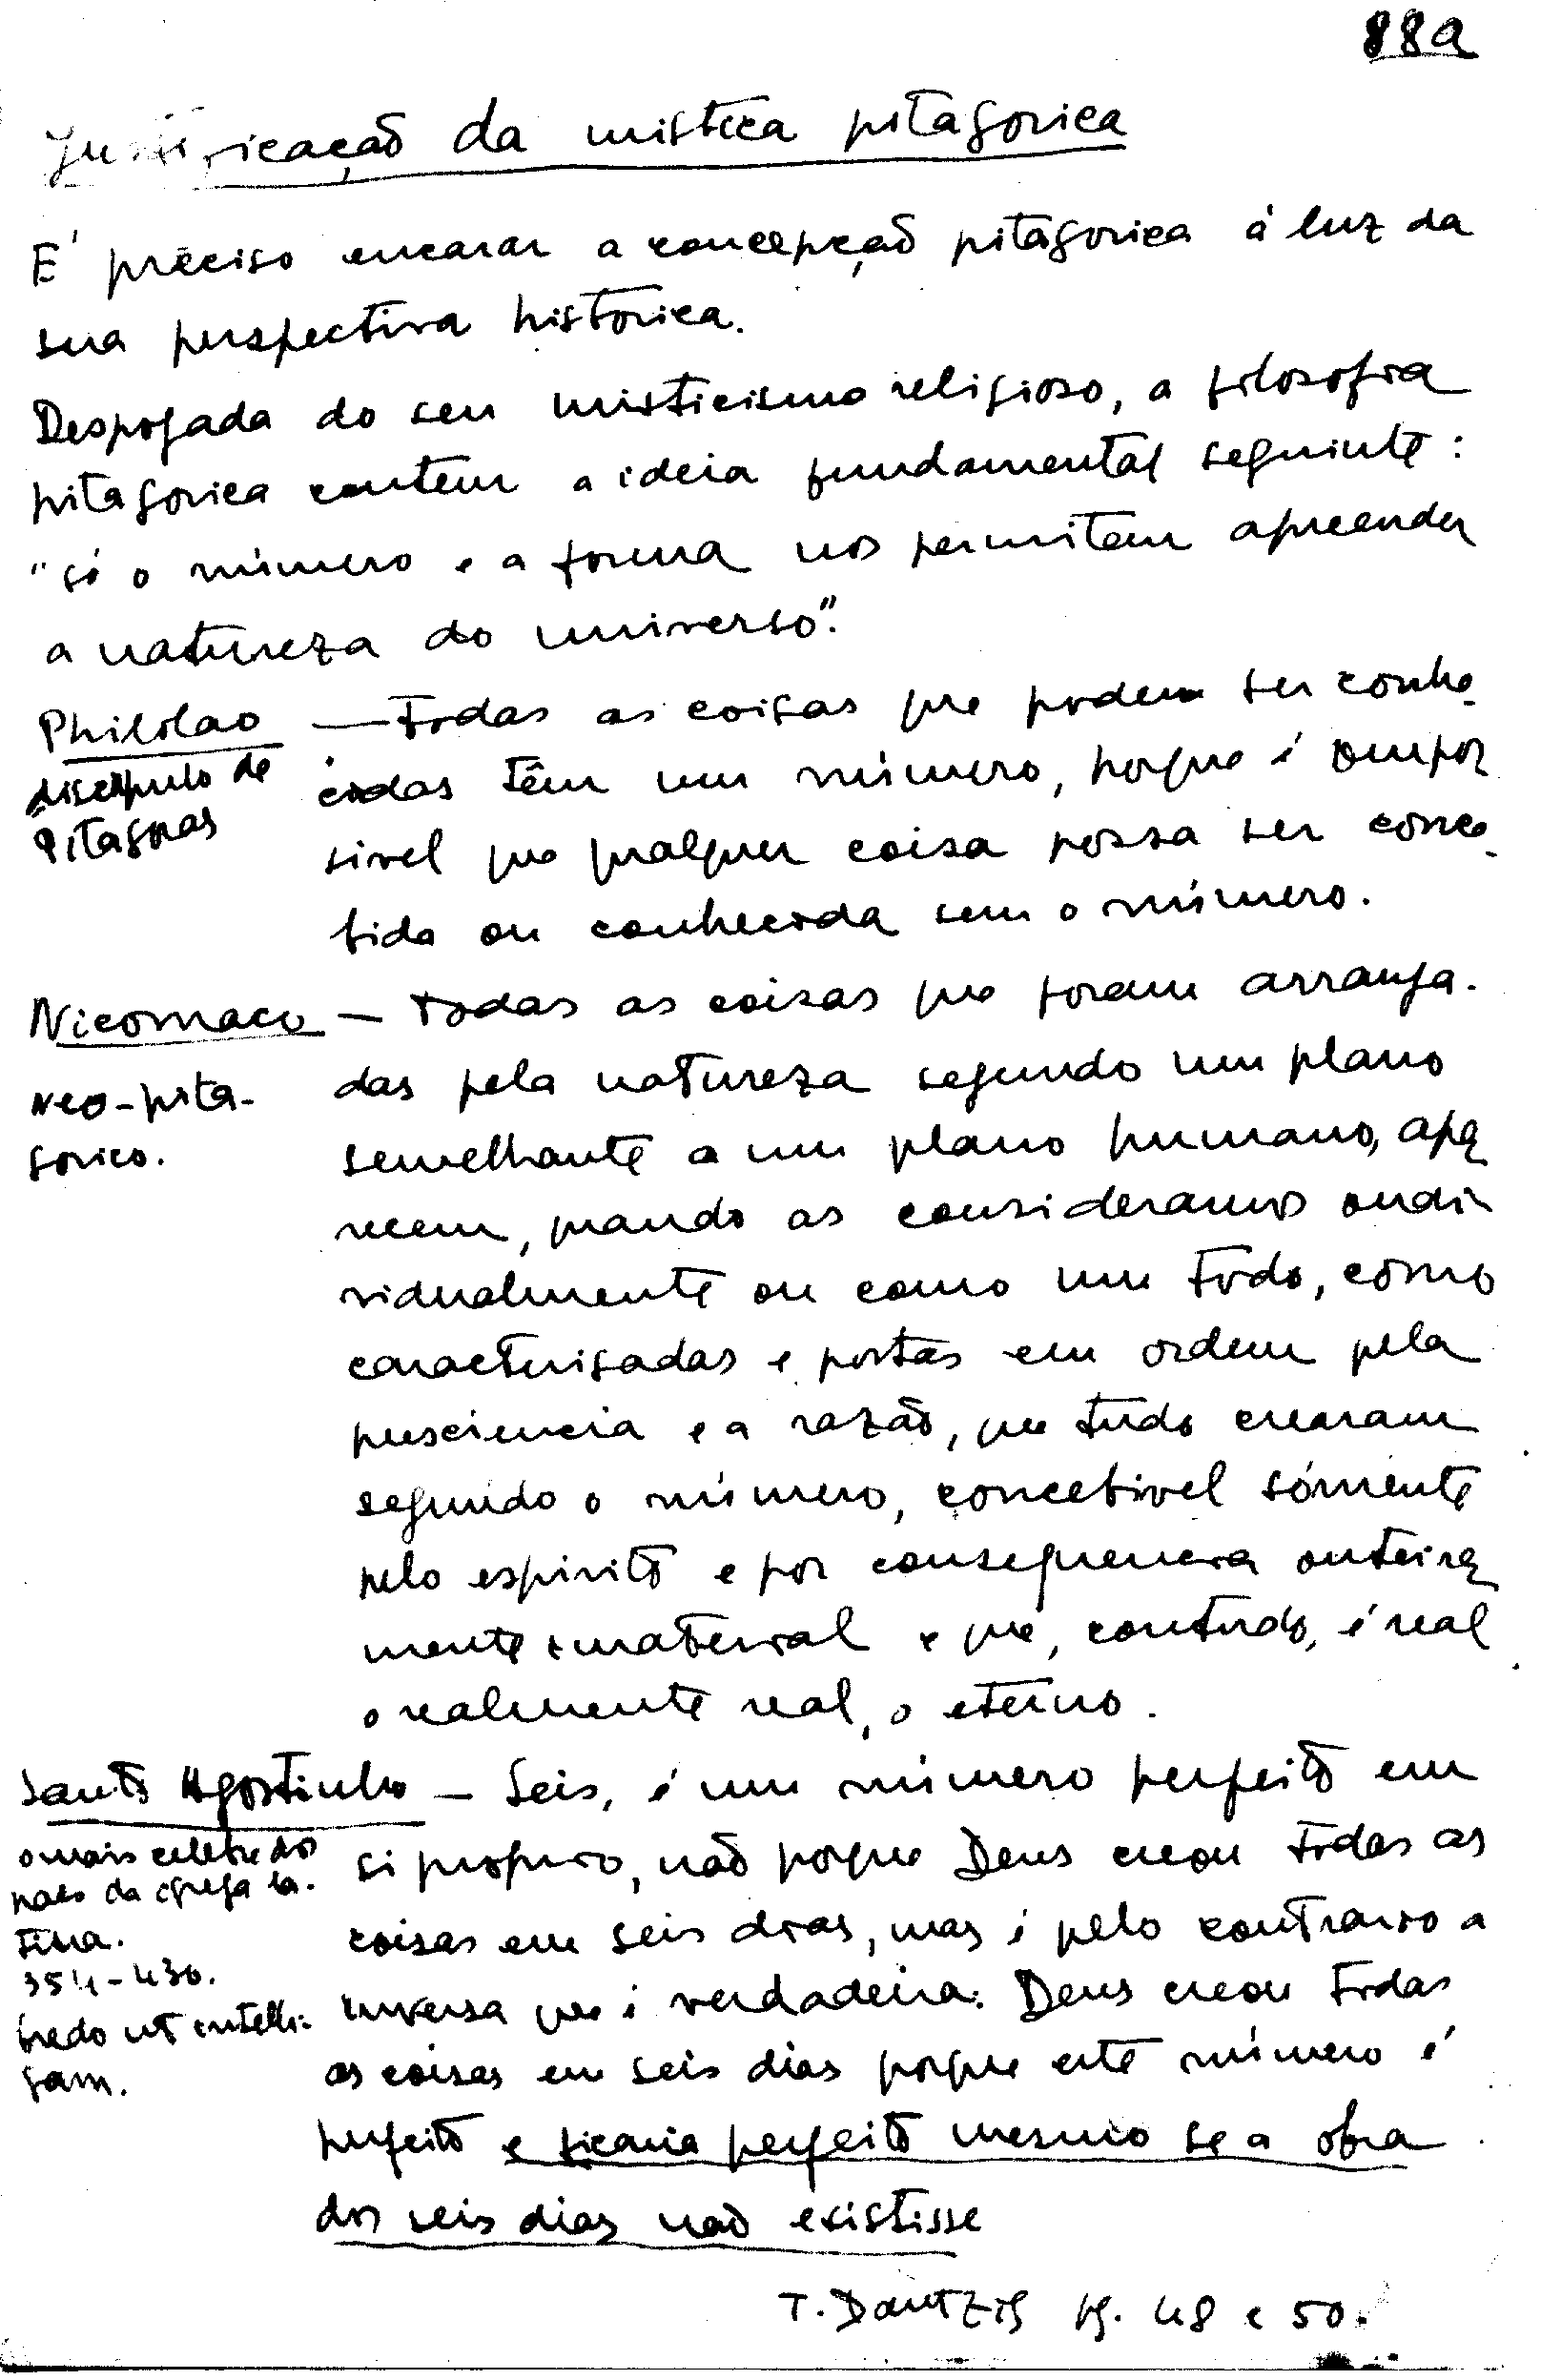 88a
Justificação da mistica pitagorica
E' preciso encarar a concepção pitagorica á luz da
sua perspectiva historica.
Despojada do seu misticismo religioso, a filosofia
pitagorica contem a ideia fundamental seguinte:
"só o número e a forma nos permitem apreender
a natureza do universo".
Philolao — Todas as coisas que podem ser conhe-
discipulo de
Pitagoras
cidas têm um número, porque é impos
sivel que qualquer coisa possa ser conce-
bida ou conhecida sem o número.
Nicomaco — Todas as coisas que foram arranja-
neo-pita-
gorico.
das pela natureza segundo um plano
semelhante a um plano humano, apa
recem, quando as consideramos indi-
vidualmente ou como um todo, como
caracterisadas e postas em ordem pela
presciencia e a razão, que tudo crearam
segundo o número, concebivel sómente
pelo espirito e por consequencia inteira
mente imaterial e que, contudo, é real
o realmente real, o eterno.
Santo Agostinho — Seis, é um número perfeito em
o mais celebre dos
paes da igreja la-
tina.
354-430.
Credo ut intelli-
gam.
si proprio, não porque Deus creou todas as
coisas em seis dias, mas é pelo contrario a
inversa que é verdadeira: Deus creou todas
as coisas em seis dias porque este número é
perfeito e ficaria perfeito mesmo se a obra
dos seis dias não existisse
T. Dantzig pg. 48 e 50.